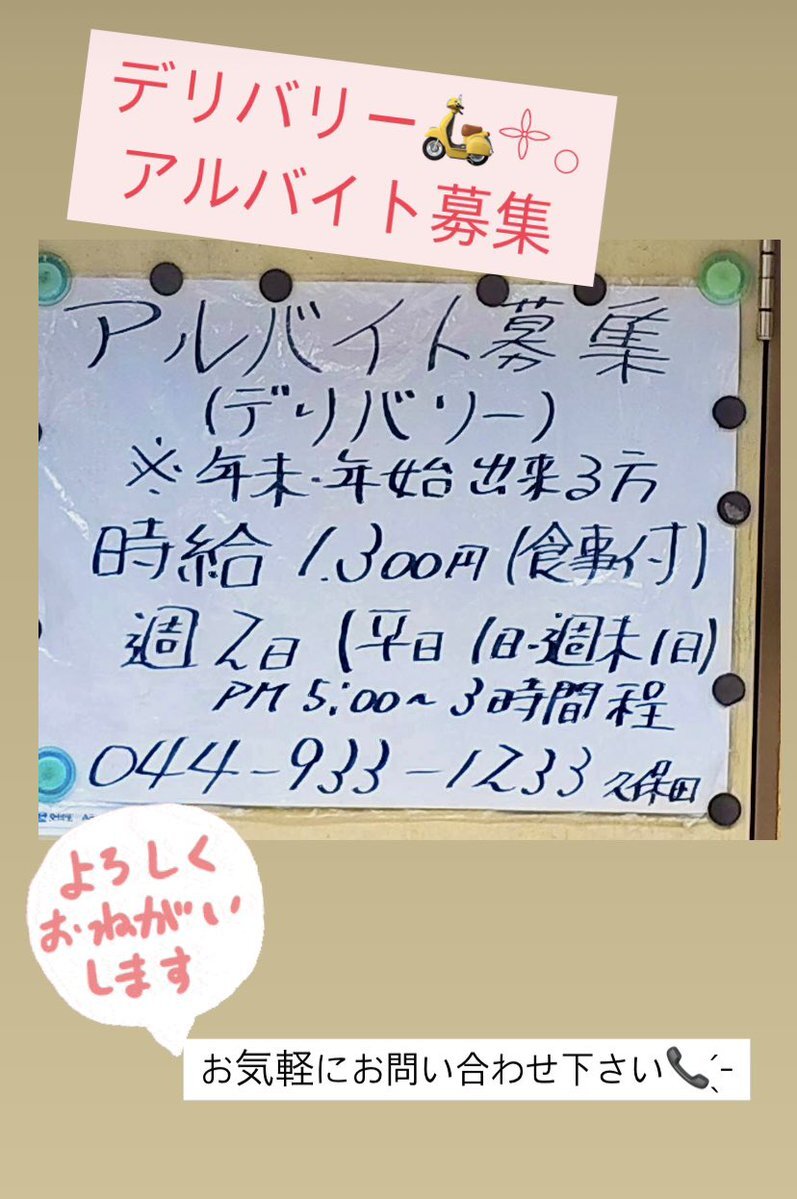 デリバリー🛵
アルバイト募集
アルバイト募集
(デリバリー)
※年末・年始出来る方
時給 1.300円(食事付)
週2日(平日1日・週末1日)
PM 5:00~3時間程
044-933-1233 久保田
よろしく
おねがい
します
お気軽にお問い合わせ下さい📞